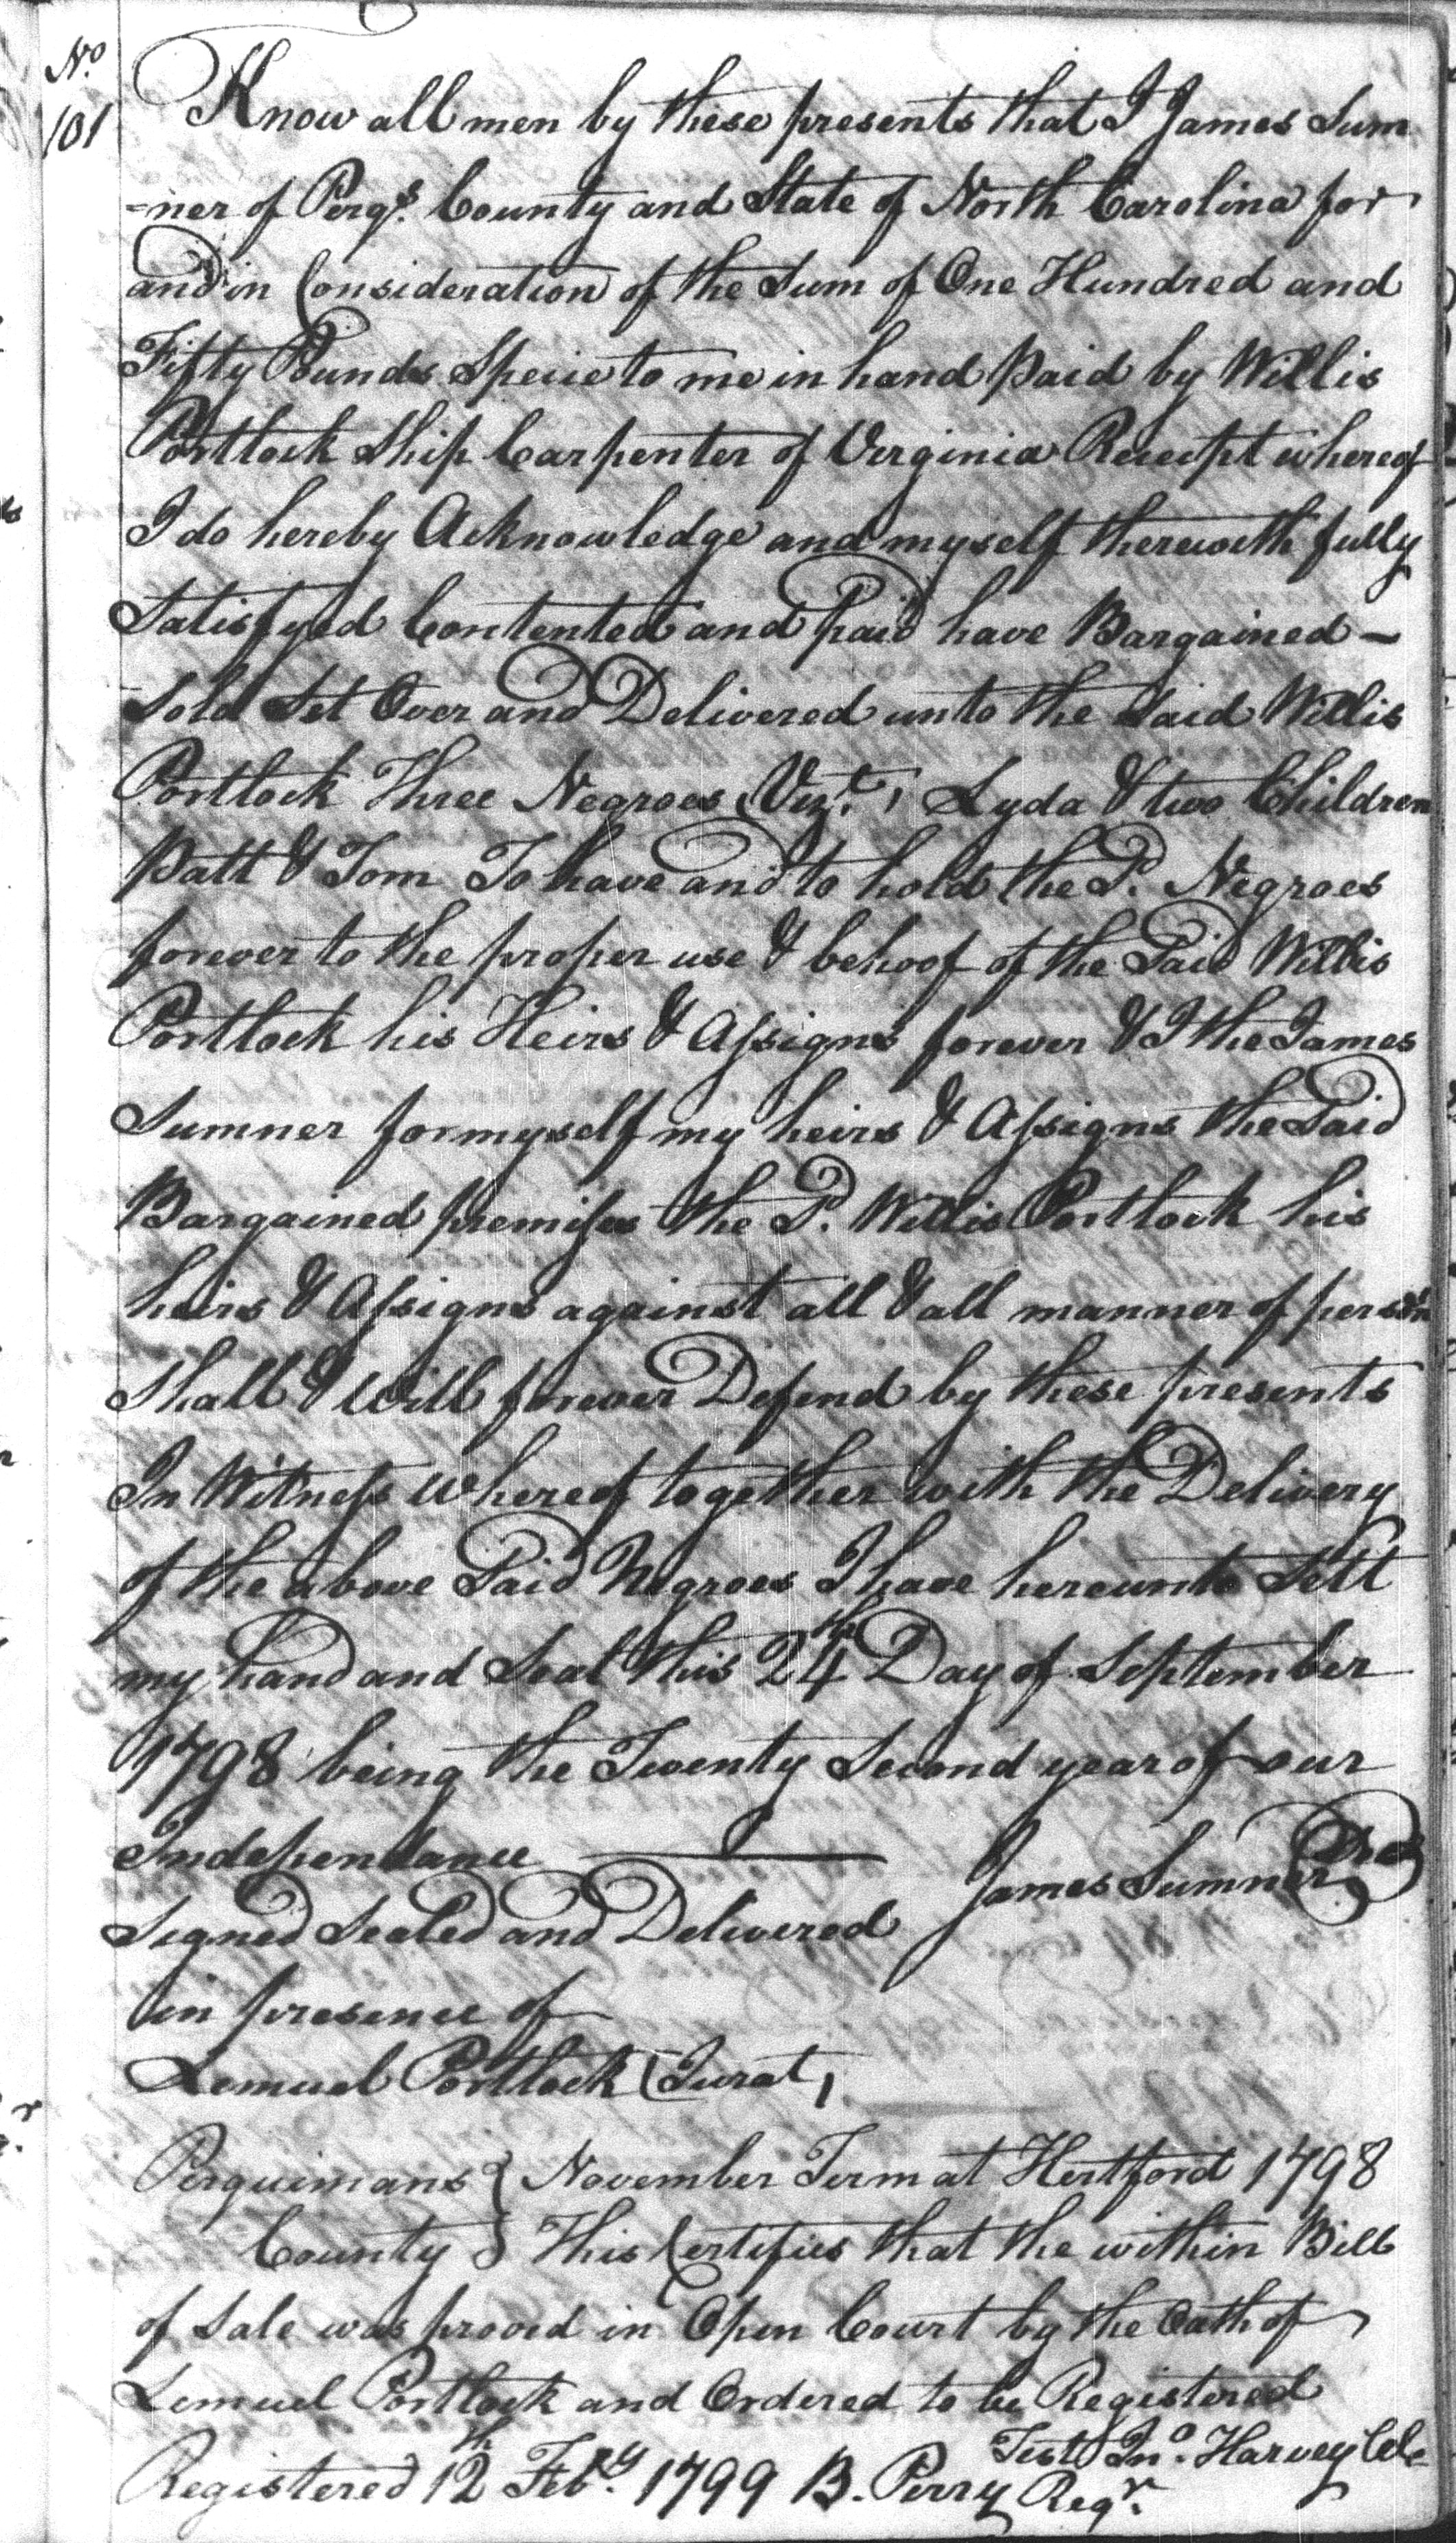 No
101
Know all men by these presents that I James Sum
=ner of Perqs. County and State of North Carolina for
and in Consideration of the Sum of One Hundred and
Fifty Pounds Specie to me in hand Paid by Willis
Portlock Ship Carpenter of Virginia Receipt whereof
I do hereby Acknowledge and myself therewith fully
Satisfyed Contented and paid have Bargained -
Sold Set Over and Delivered unto the Said Willis
Portlock Three Negroes, Vizt, Lyda & two Children
Patt & Tom To have and to hold the Sd. Negroes
forever to the proper use & behoof of the Said Willis
Portlock his Heirs & Assigns forever & I the James
Sumner for myself my heirs & Assigns the Said
Bargained premises the Sd. Willis Portlock his
heirs & Assigns against all & all manner of person
Shall & Will forever Defend by these presents
In Witness whereof together with the Delivery
of the above Said Negroes I have hereunto Sett
my hand and Seal this 24th Day of September
1798 being the Twenty Second year of our
Independance
James Sumner
Signed Sealed and Delivered
in presence of
Lemuel Portlock (Jurat,
Perquimans } November Term at Hertford 1798
County } This Certifies that the within Bill
of Sale was proved in Open Court by the Oath of
Lemuel Portlock and Ordered to be Registered
Test Jno. Harvey Clk
Registered 12th Feby. 1799 B. Perry Regr.